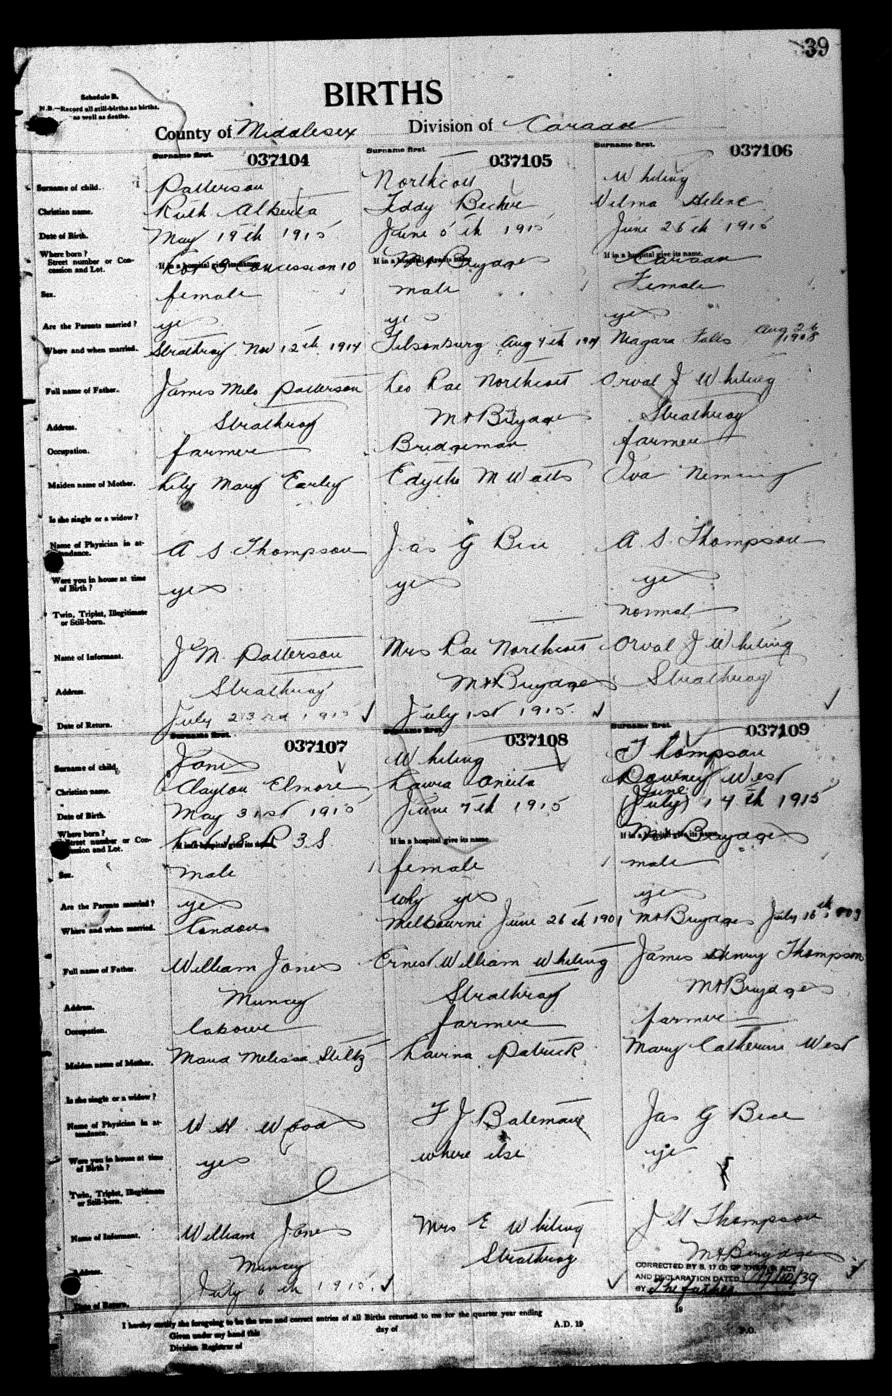 39
Schedule B.
N.B.—Record all still-births as births, as well as deaths.
BIRTHS
County of Middlesex Division of Caradoc
Surname first. 037104 Surname first. 037105 Surname first. 037106
Surname of child. Patterson Northcott Whiting
Christian name. Ruth Alberta Teddy Velma Helene
Date of Birth. May 19th 1915 June 5th 1915 June 26th 1915
Where born? Street number or Concession and Lot. If in a hospital give its name. Concession 10 If in a hospital give its name. Mt Brydges If in a hospital give its name. Caradoc
Sex. female male Female
Are the Parents married? yes yes yes
Where and when married. Strathroy Nov 12th 1914 Tilsonburg Aug 4th Niagara Falls Aug 26 1908
Full name of Father. James Milo Patterson Leo Rae Northcott Orval J Whiting
Address. Strathroy Mt Brydges Strathroy
Occupation. farmer Bridgeman farmer
Maiden name of Mother. Lily Mary Earley Edythe M Watts Iva
Is she single or a widow?
Name of Physician in attendance. A S Thompson Jas G Bice A. S. Thompson
Were you in house at time of Birth? yes yes yes
Twin, Triplet, Illegitimate or Still-born. normal
Name of Informant. J M. Patterson Mrs Rae Northcott Orval J Whiting
Address. Strathroy Mt Brydges Strathroy
Date of Return. July 23rd 1915 July 1st 1915.
Surname first. 037107 Surname first. 037108 Surname first. 037109
Surname of child. Jones Whiting Thompson
Christian name. Clayton Elmore Laura Downey West
Date of Birth. May 31st 1915 June 7th 1915 June (July) 14th 1915
Where born? Street number or Concession and Lot. If in a hospital give its name. R 3 S If in a hospital give its name. If in a hospital give its name. Mt Brydges
Sex. male female male
Are the Parents married? yes why yes yes
Where and when married. London Melbourne June 26th 1901 Mt Brydges July 15th
Full name of Father. William Jones Ernest William Whiting James Henry Thompson
Address. Muncey Strathroy Mt Brydges
Occupation. labourer farmer farmer
Maiden name of Mother. Maud Melissa Stiltz Lavina Patrick Mary Catherine West
Is she single or a widow?
Name of Physician in attendance. W. H. Woods F J Bateman Jas G Bice
Were you in house at time of Birth? yes where else yes
Twin, Triplet, Illegitimate or Still-born.
Name of Informant. William Jones Mrs E Whiting J H Thompson
Address. Muncey Strathroy Mt Brydges
Date of Return. July 6th 1915.
CORRECTED BY S. 17 OF THE ACT
AND DECLARATION DATED /10/39
BY The father
I hereby certify the foregoing to be the true and correct entries of all Births returned to me for the quarter year ending 19
Given under my hand this day of A.D. 19
Division Registrar of P.O.